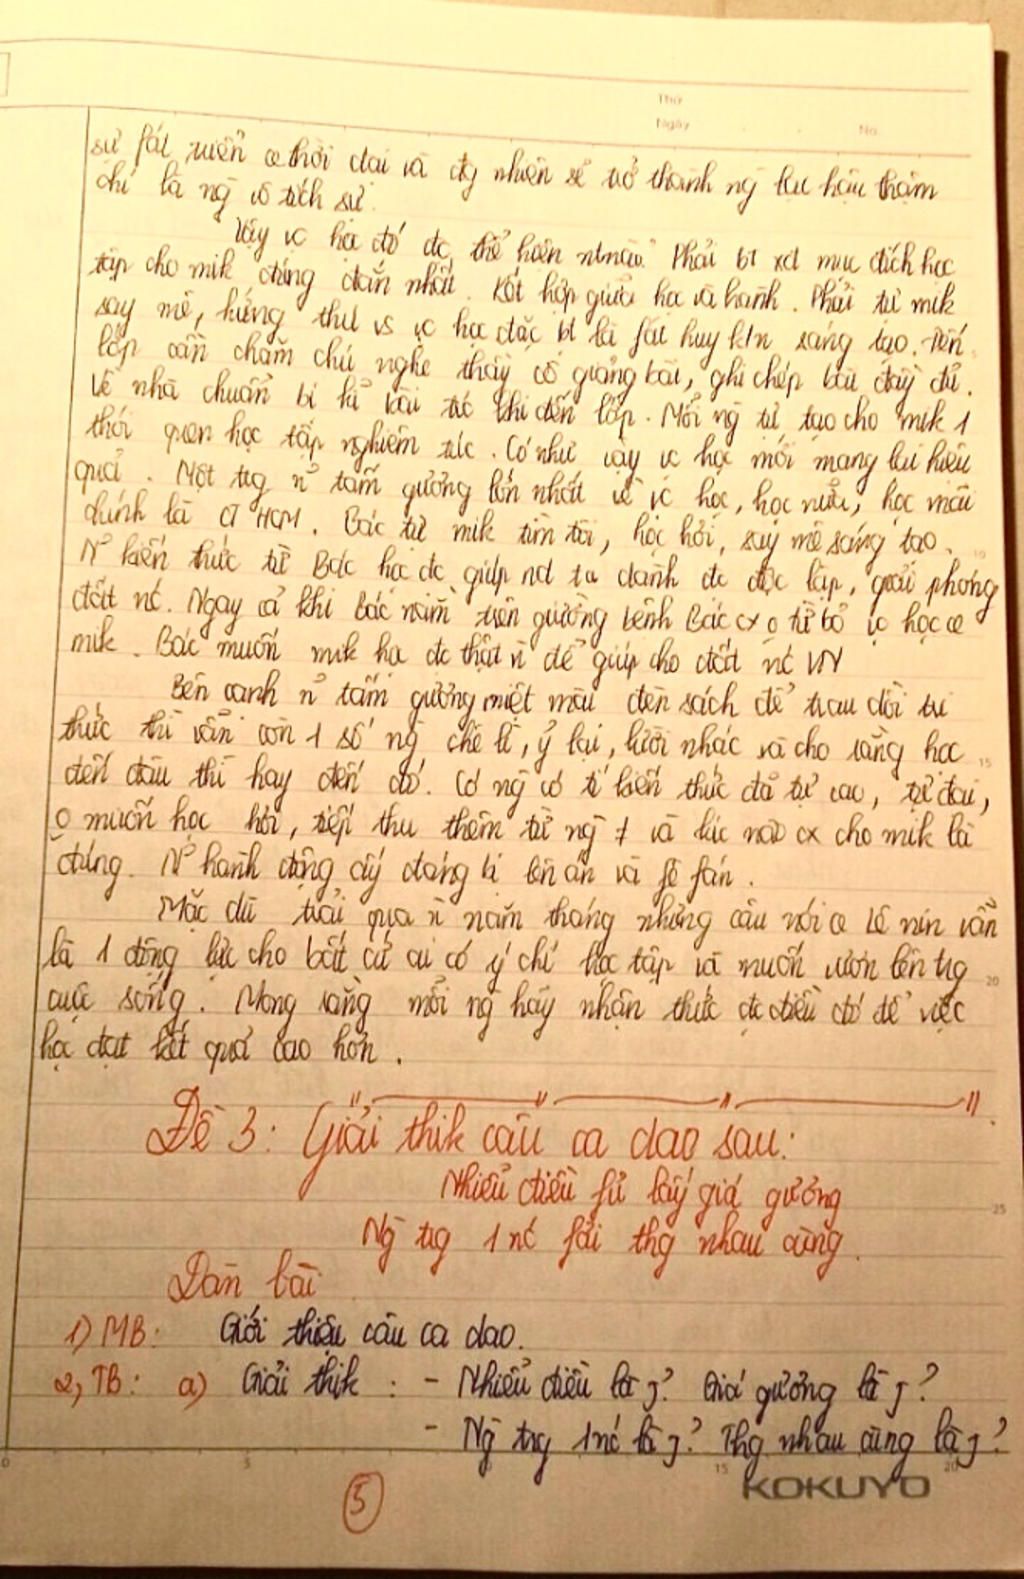 Thứ
Ngày No.
sự fát triển ơ thời đại và đg nhiên sẽ trở thành ng lạc hậu thậm
chí là ng vô tích sự.
Vậy vc học đó đc thể hiện ntnào? Phải bt xđ mục đích học
tập cho mik đúng đắn nhất. Kết hợp giữa học và hành. Phải tự mik
say mê, hứng thú vs vc học đặc bt là fát huy k/n sáng tạo. Đến
lớp cần chăm chú nghe thầy cô giảng bài, ghi chép bài đầy đủ.
Về nhà chuẩn bị kĩ bài trc khi đến lớp. Mỗi ng tự tạo cho mik 1
thói quen học tập nghiêm túc. Có như vậy vc học mới mang lại hiệu
quả. Một trg n~ tấm gương lớn nhất về vc học, học nữa, học mãi
chính là CT HCM. Bác tự mik tìm tòi, học hỏi, say mê sáng tạo.
N~ kiến thức từ Bác học đc giúp nd ta dành đc độc lập, giải phóng
đất nc. Ngay cả khi Bác nằm trên giường bệnh Bác cx o từ bỏ vc học ơ
mik. Bác muốn mik học đc thật n` để giúp cho đất nc VN
Bên cạnh n~ tấm gương miệt mài đèn sách để trau dồi tri
thức thì vẫn còn 1 số ng chê lì, ỷ lại, lười nhác và cho rằng học
đến đâu thì hay đến đó. Có ng có tí kiến thức đã tự cao, tự đại,
o muốn học hỏi, tiếp thu thêm từ ng ≠ và lúc nào cx cho mik là
đúng. N~ hành động ấy đáng bị lên án và fê fán.
Mặc dù trải qua n` năm tháng nhưng câu nói ơ Lê nin vẫn
là 1 động lực cho bất cứ ai có ý chí học tập và muốn vươn lên trg
cuộc sống. Mong rằng mỗi ng hãy nhận thức đc điều đó để việc
học đạt kết quả cao hơn.
Đề 3: Giải thik câu ca dao sau:
Nhiễu điều fủ lấy giá gương
Ng trg 1 nc fải thg nhau cùng.
Dàn bài
1) MB: Giới thiệu câu ca dao.
2, TB: a) Giải thik: - Nhiễu điều là j? Giá gương là j?
- Ng trg 1 nc là j? Thg nhau cùng là j?
0 5 15 20
KOKUYO
5